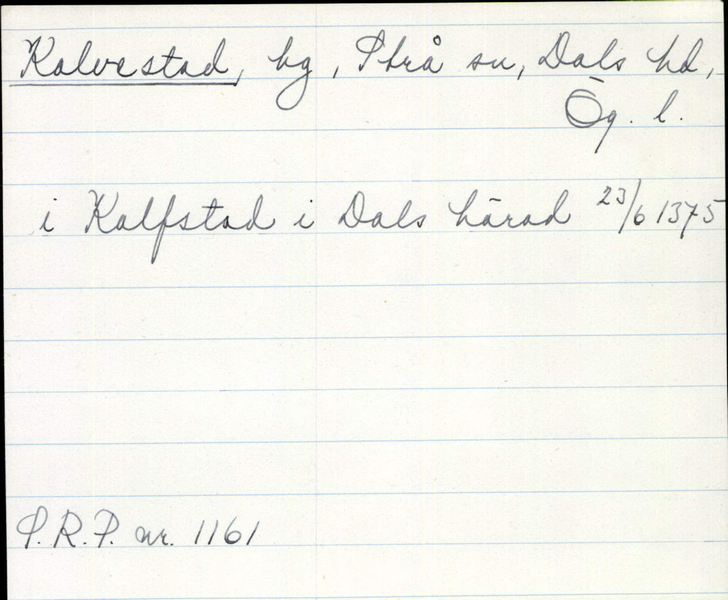 Kalvestad, by, Strå sn, Dals hd,
Ög. l.
i Kalfstad i Dals härad 23/6 1375
S.R.P. nr. 1161